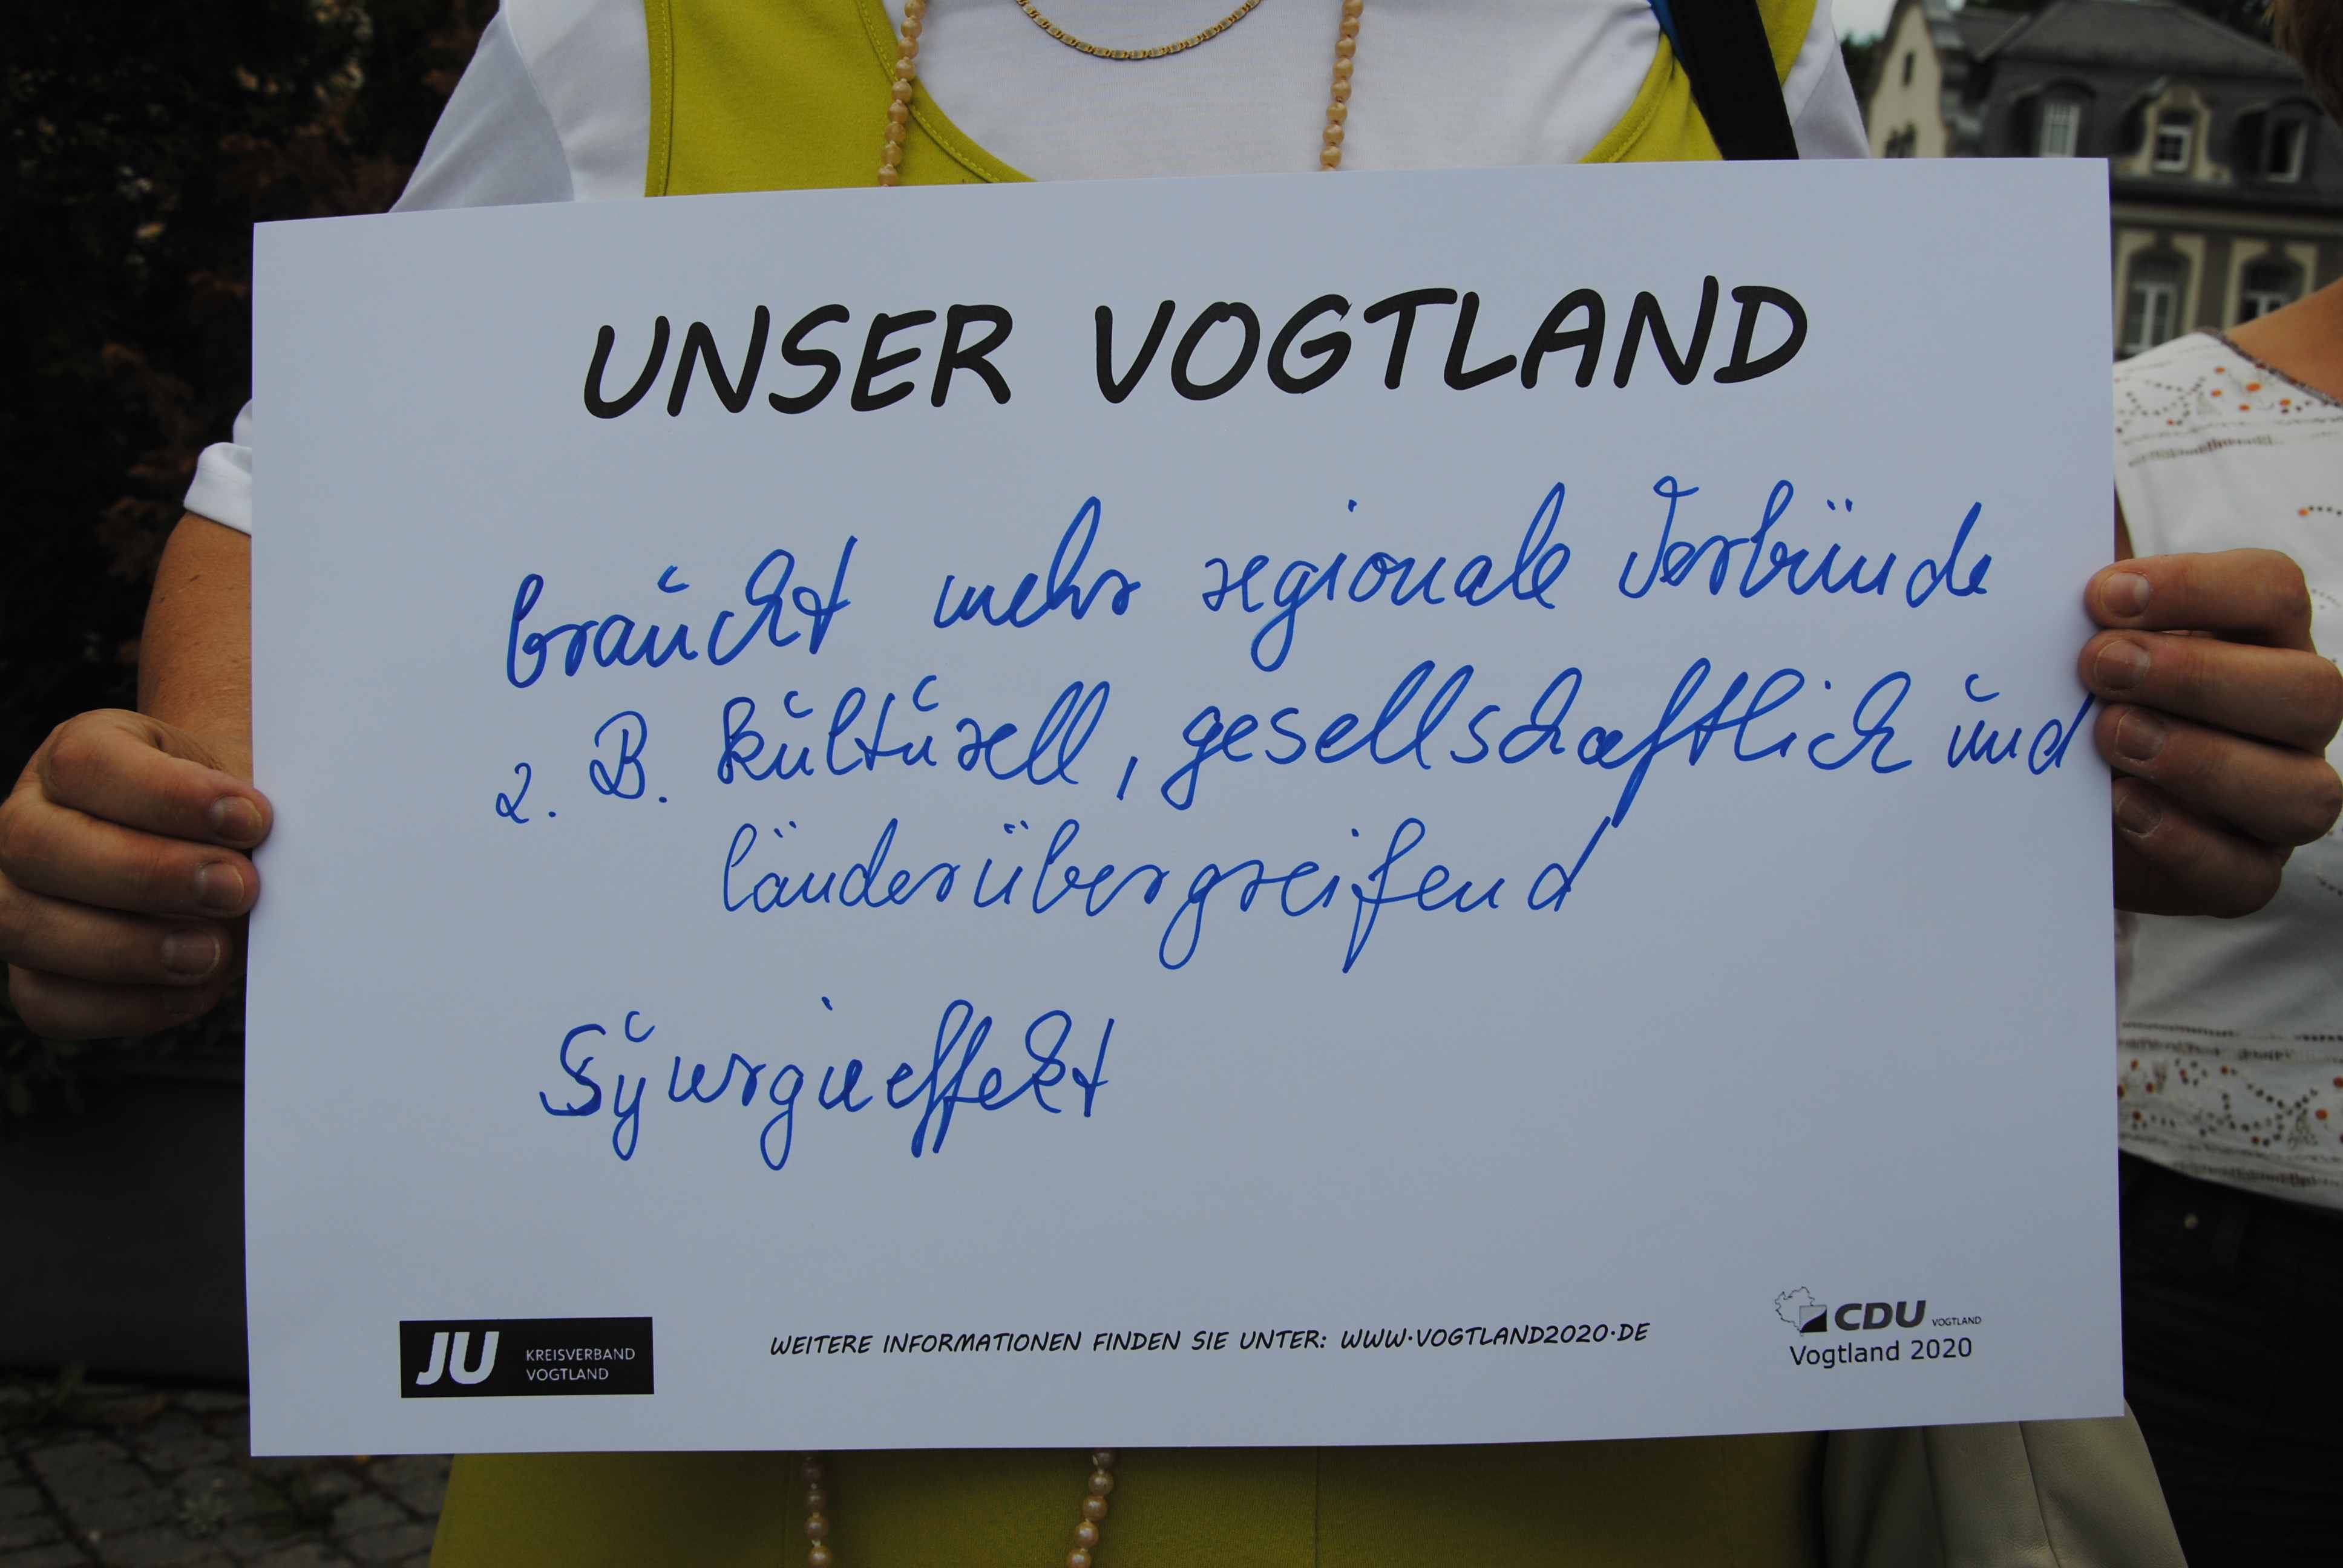 UNSER VOGTLAND
braucht mehr regionale Verbünde
z. B. kulturell, gesellschaftlich und
länderübergreifend
Synergieeffekt
JU KREISVERBAND
VOGTLAND
WEITERE INFORMATIONEN FINDEN SIE UNTER: WWW.VOGTLAND2020.DE
CDU VOGTLAND
Vogtland 2020